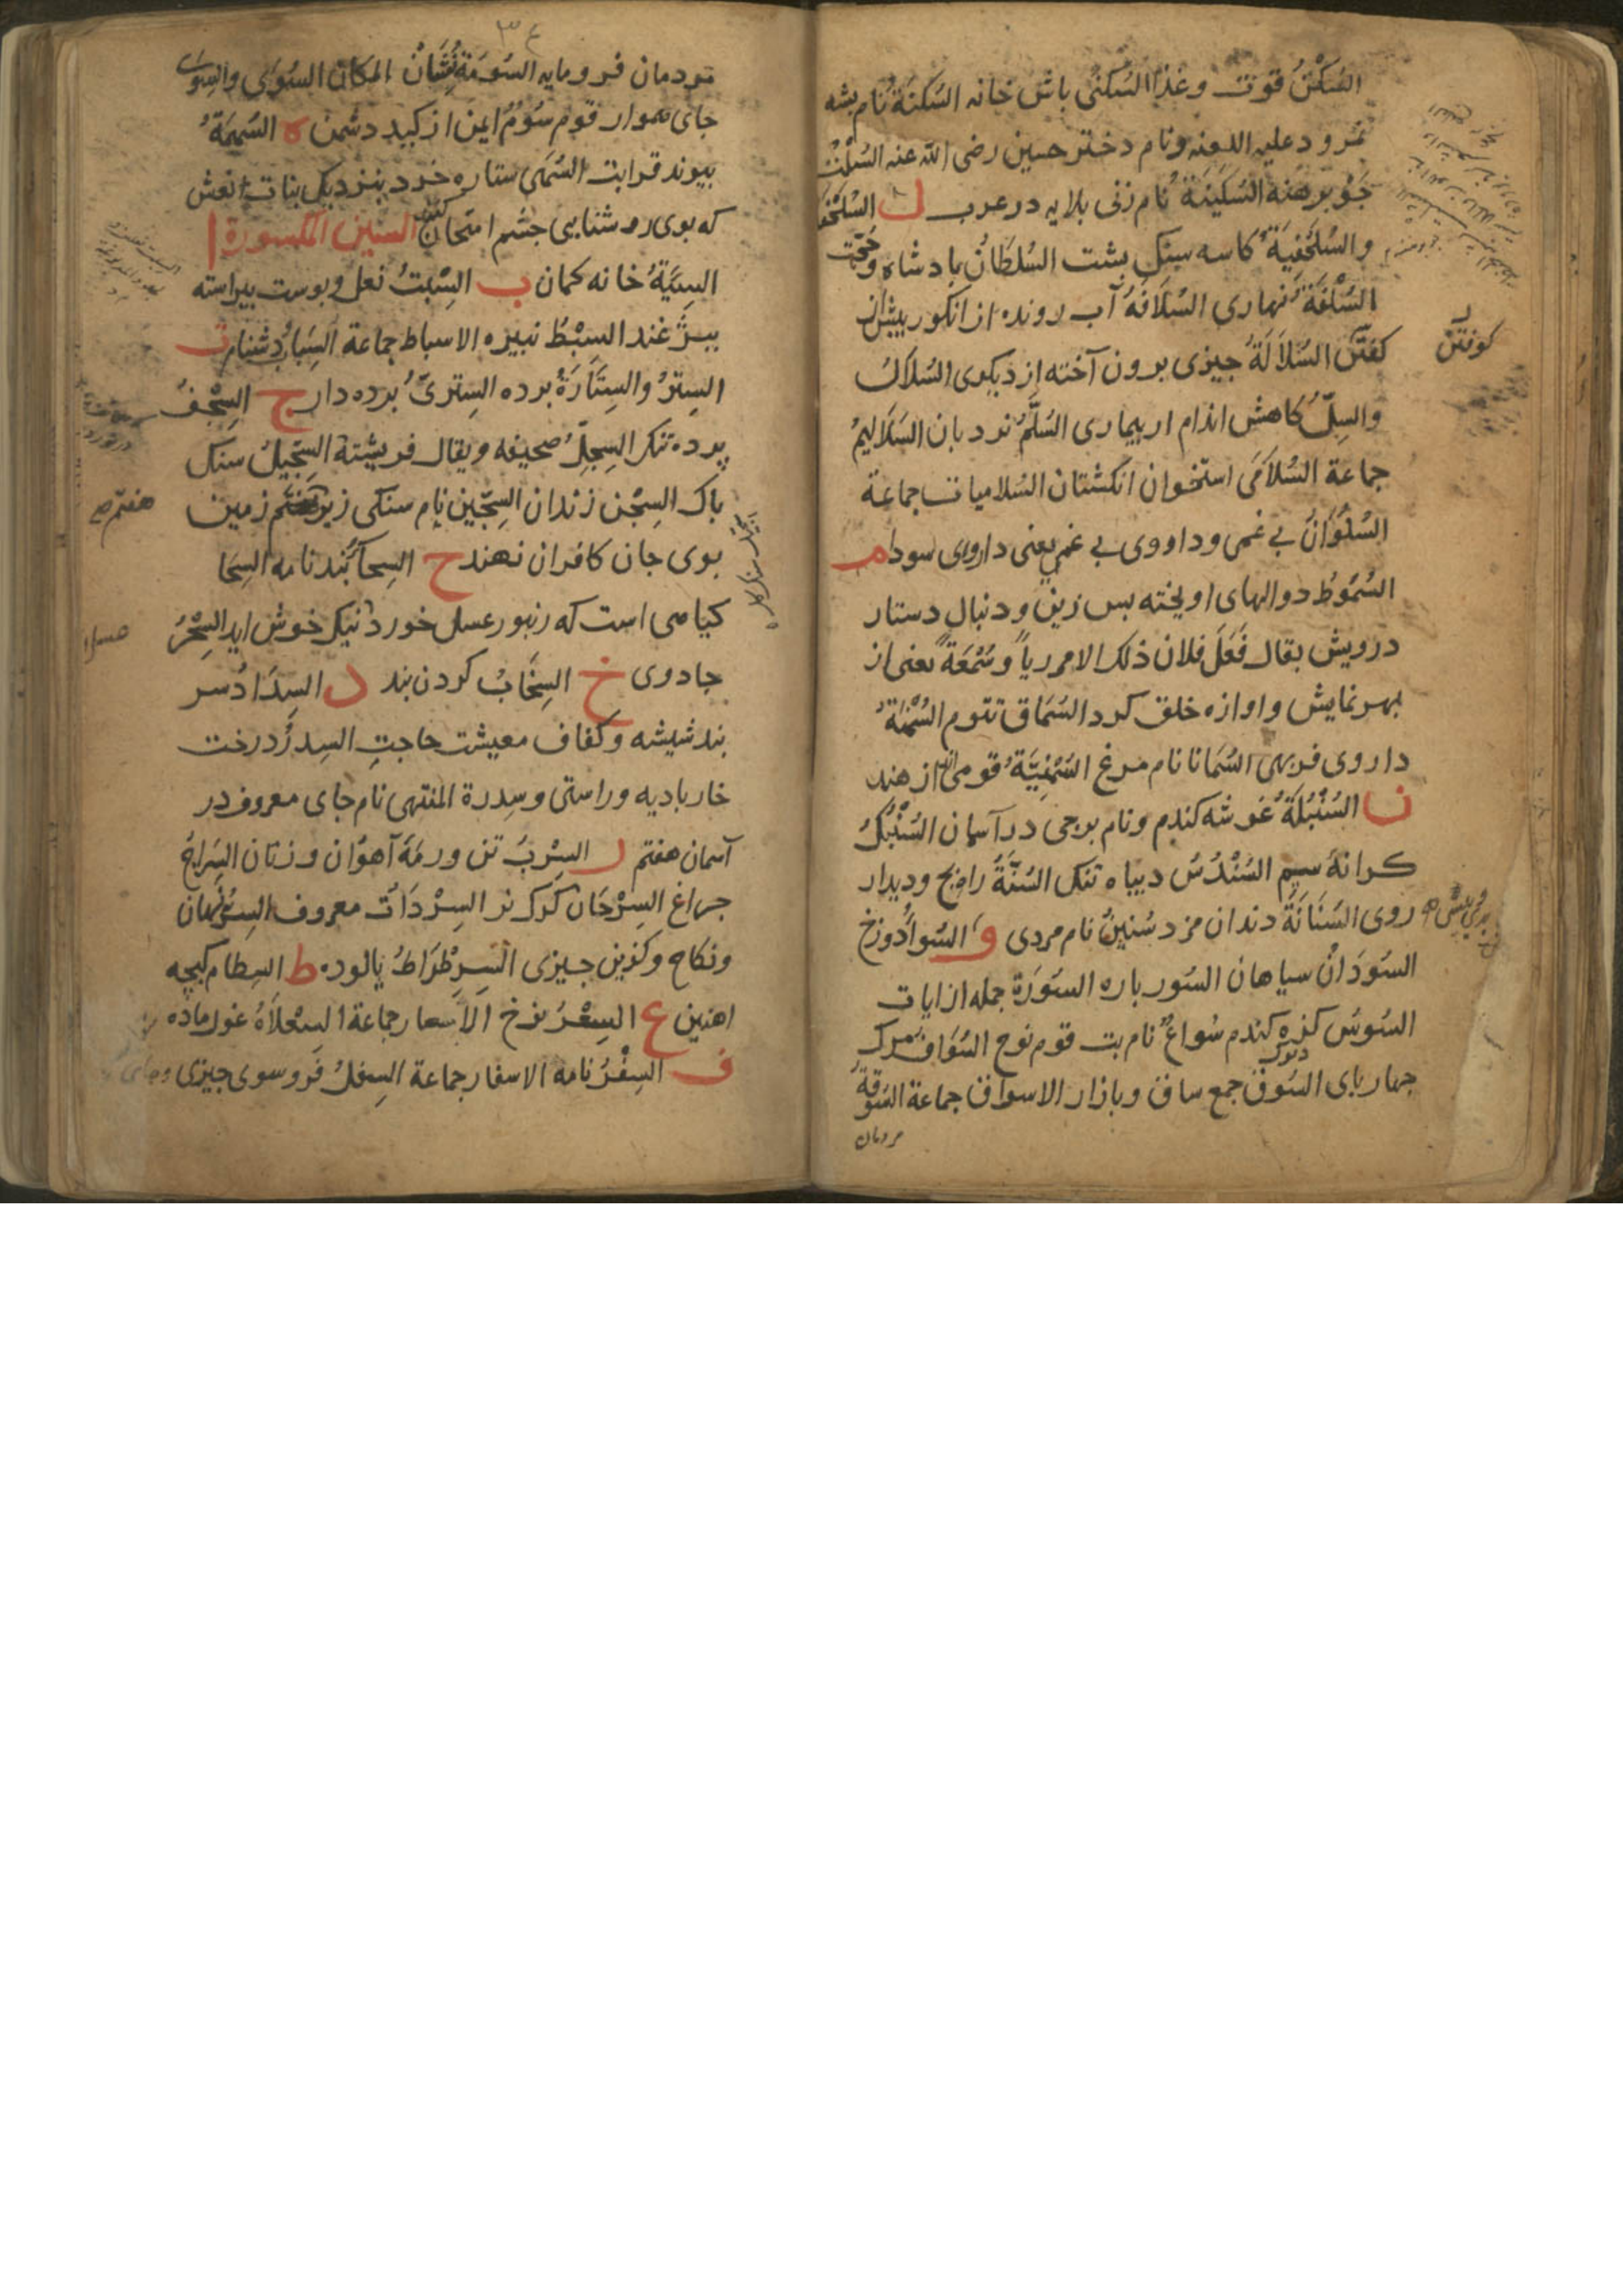 السُکْنُ قوت وغذا السُکنی باش خانه السُکنَةُ نام بشه
نمرود علیه اللعنه ونام دختر حسین رضی الله عنه السُلْتُ
جَوْ برهنه السُکَیْنَةُ نام زنی بلایه در عرب ل السُلَحْفَا
والسُلَحْفِیَةُ کاسه سنک بشت السُلطَانُ بادشاه وحُجّت
السُلْفَةُ نهاری السُلَافَةُ آب رونده از انکور بیش از
کوفتن
کفتن السُلَالَةُ جیزی برون آخته از دیکری السُلاکُ
والسِلّ کاهش اندام از بیماری السُلَّمُ نردبان السَلَالیمُ
جماعة السُلَامَی استخوان انکشتان السُلامیات جماعة
السُلْوَانُ بی غمی وداروی بی غمی یعنی داروی سودا م
السُمُوطُ دوالهای اویخته بس زین ودنبال دستار
درویش یقال فَعَلَ فلان ذلک الامر ریاً وسُمْعَةً یعنی از
بهر نمایش واوازه خلق کرد السُمَاق تتوم السُمْنَةُ
داروی فربهی السُمَانا نام مرغ السُمْنِیَّةُ قومی از هند
ن السُنْبُلَةُ غوشه کندم ونام برجی در آسمان السُنْبُکُ
کرانهٔ سیم السُنْدُسُ دیباه تنک السُنّةُ راه نج ودیدار
روی السَنَانَةُ دندان مزد سُنَینٌ نام مردی و السُوأُ دوزخ
السُودَانُ سیاهان السُور باره السُورَةُ جمله از ایات
السُوسُ کزه کندم سُواعٌ نام بت قوم نوح السُوَافُ مرک
جهار بای السُوقُ جمع ساق وبازار الاسواق جماعة السُوقَةُ
مردمان
مردمان فرومایه السُومَةُ نِشَانْ المکان السُوَی والسِوَی
جای هموار قوم سُوُمٌ ایمن از کید دشمن ه السُهمَةُ
بیوند قرابت السُهَی ستاره خرد بنزدیک بنات انعش
که بوی روشنایی جشم امتحان کنند السین المکسورة ا
السِیَةُ خانه کمان ب السِبْتُ نعل وبوست بیراسته
ببرْغند السِبْطُ نبیره الاسباط جماعة السِبَابُ دشنام ت
السِترُ والسِتَارَةُ برده السِتریّ برده دار ج السِجْفُ
پرده تنک السِجِلّ صحیفه ویقال فریشتة السِجّیلُ سنک
باک السِجْن زندان السِجّین نام سنکی زیر هفتم زمین
هفتم صح
بوی جان کافران نهند ح السِحَأُ بند نامه السِحَا
کیاهی است که زنبور عسل خورد نیک خوش اید السِحْرُ
عسل
جادوی خ السِخَابُ کردن بند د السِدَادُ سر
بند شیشه وکفاف معیشت حاجتِ السِدرُ درخت
خار بادیه وراستی وسِدرة المنتهی نام جای معروف در
آسمان هفتم ر السِرْبُ تن ورمَهٔ آهوان وزنان السِرَاجُ
جراغ السِرْحَان کرک نر السِرْدَاتُ معروف السِرُّ نهان
ونکاح وکزین جیزی السِرِطْرَاطُ پالوده ط السِطام کبچه
اهنین ع السِعْرُ نرخ الاسعار جماعة السِعْلَاةُ غول ماده
ف السِفْرُ نامه الاسفار جماعة السِفلُ فروسوی جیزی